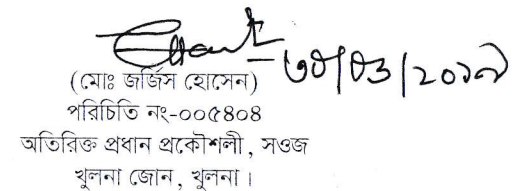 ৩০/০৩/২০১৭
(মোঃ জর্জিস হোসেন)
পরিচিতি নং-০০৫৪০৪
অতিরিক্ত প্রধান প্রকৌশলী, সওজ
খুলনা জোন, খুলনা।